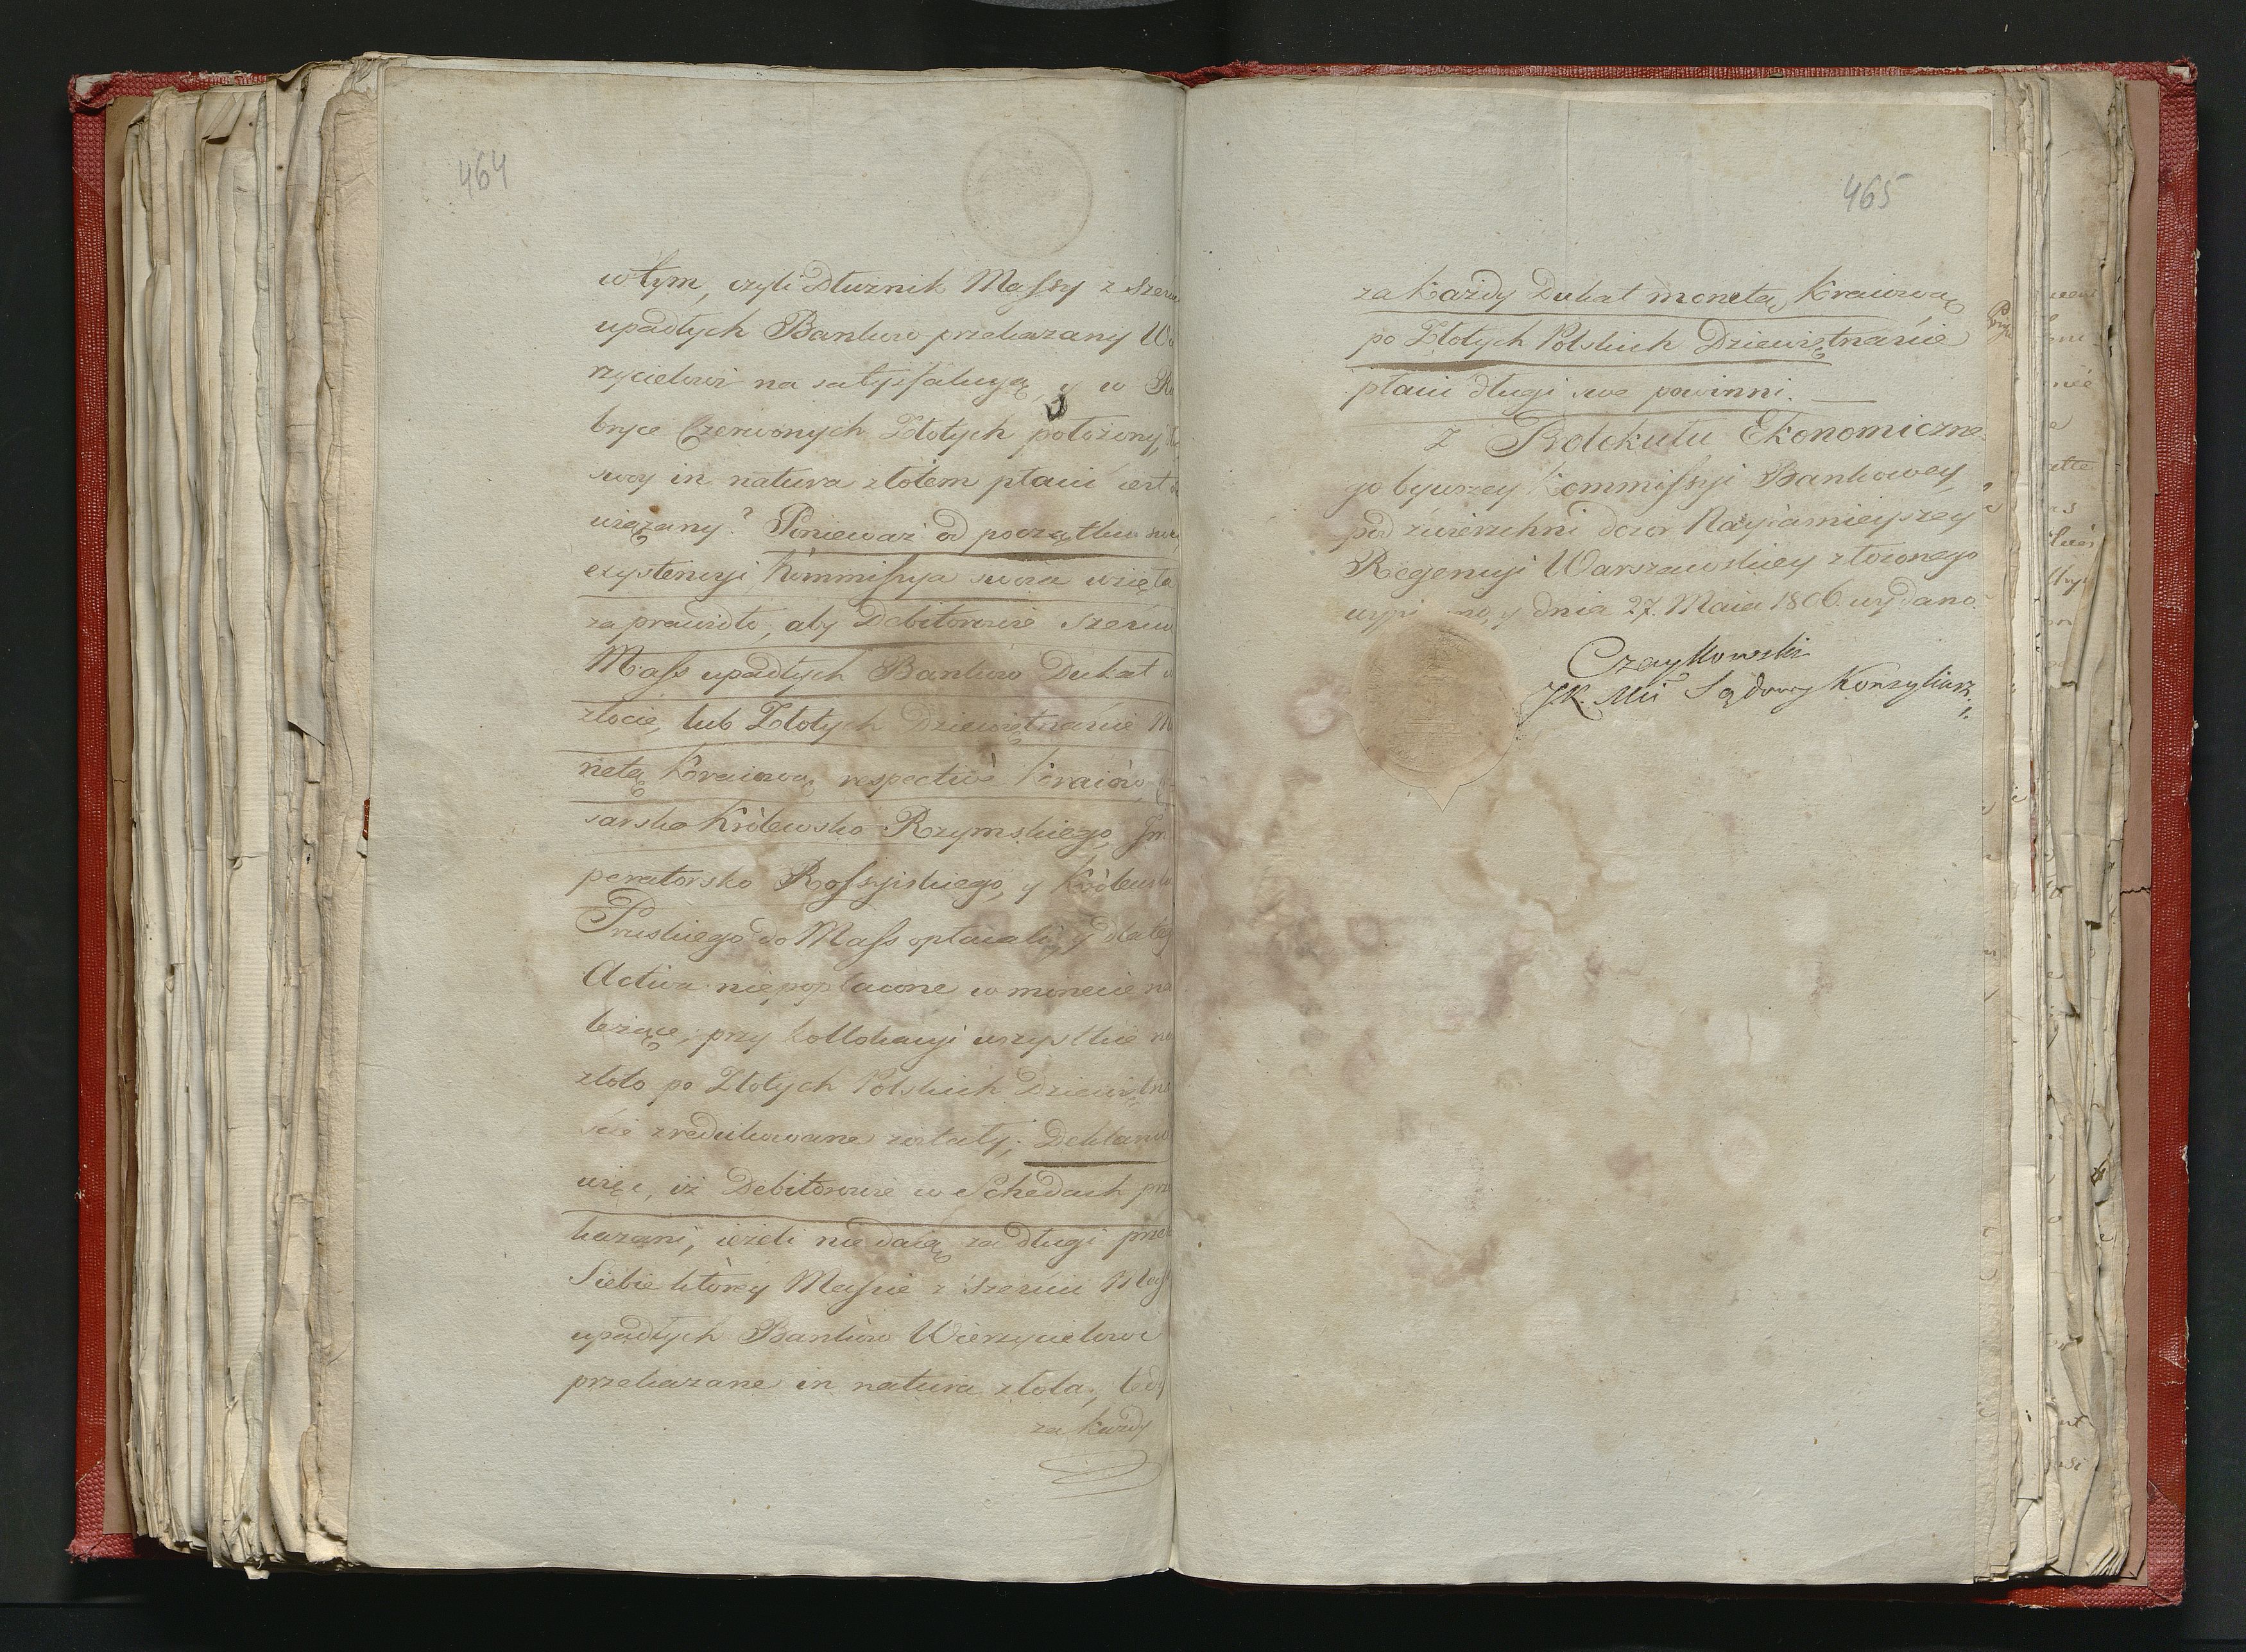 464
w tym, czyli Dłużnik Massy z Szeciu
upadłych Bankow przekazany W
rzycielowi na satysfakcyą, y w Ru
bryce Czerwonych Złotych położony,
swoy in natura złotem płacić iest
wiązany? Ponieważ od początku swey
exystencyi, Kommissya swoia wzięła
za prawidło, aby Debitorowie Szeciu
Mass upadłych Bankow Dukat w
złocie, lub Złotych Dziewiętnaście Mo
netą Kraiową respectivè Kraiow,
sarsko Królewsko-Rzymskiego, Jm
peratorsko Rossyiskiego, y Królewsko
Pruskiego do Mass opłacali, y dlateg
Activa niepopłacone w monecie na
leżące, przy kollokacyi wszystkie na
złoto po Złotych Polskich Dziewiętna
ście zredukowane zostały; Deklaruie
więc, iż Debitorowie w Schedach prze
kazani, ieżeli nie daią za długi przez
Siebie ktorey Massie z Szeciu Mass
upadłych Bankòw Wierzycielowi
przekazane in natura złota, tedy
za każdy
465
za każdy Dukat monetą Kraiową
po Złotych Polskich Dziewiętnaście
płacić długi swe powinni.
Z Protokułu Ekonomiczne
go bywszey Kommissyi Bankowey,
pod zwierzchni dozor Nayiaśnieyszey
Regencyi Warszawskiey złożonego
wypi no, y dnia 27. Maia 1806. wydano.
Czaykowski
J.K. Mci Sądowy Konsyliarz